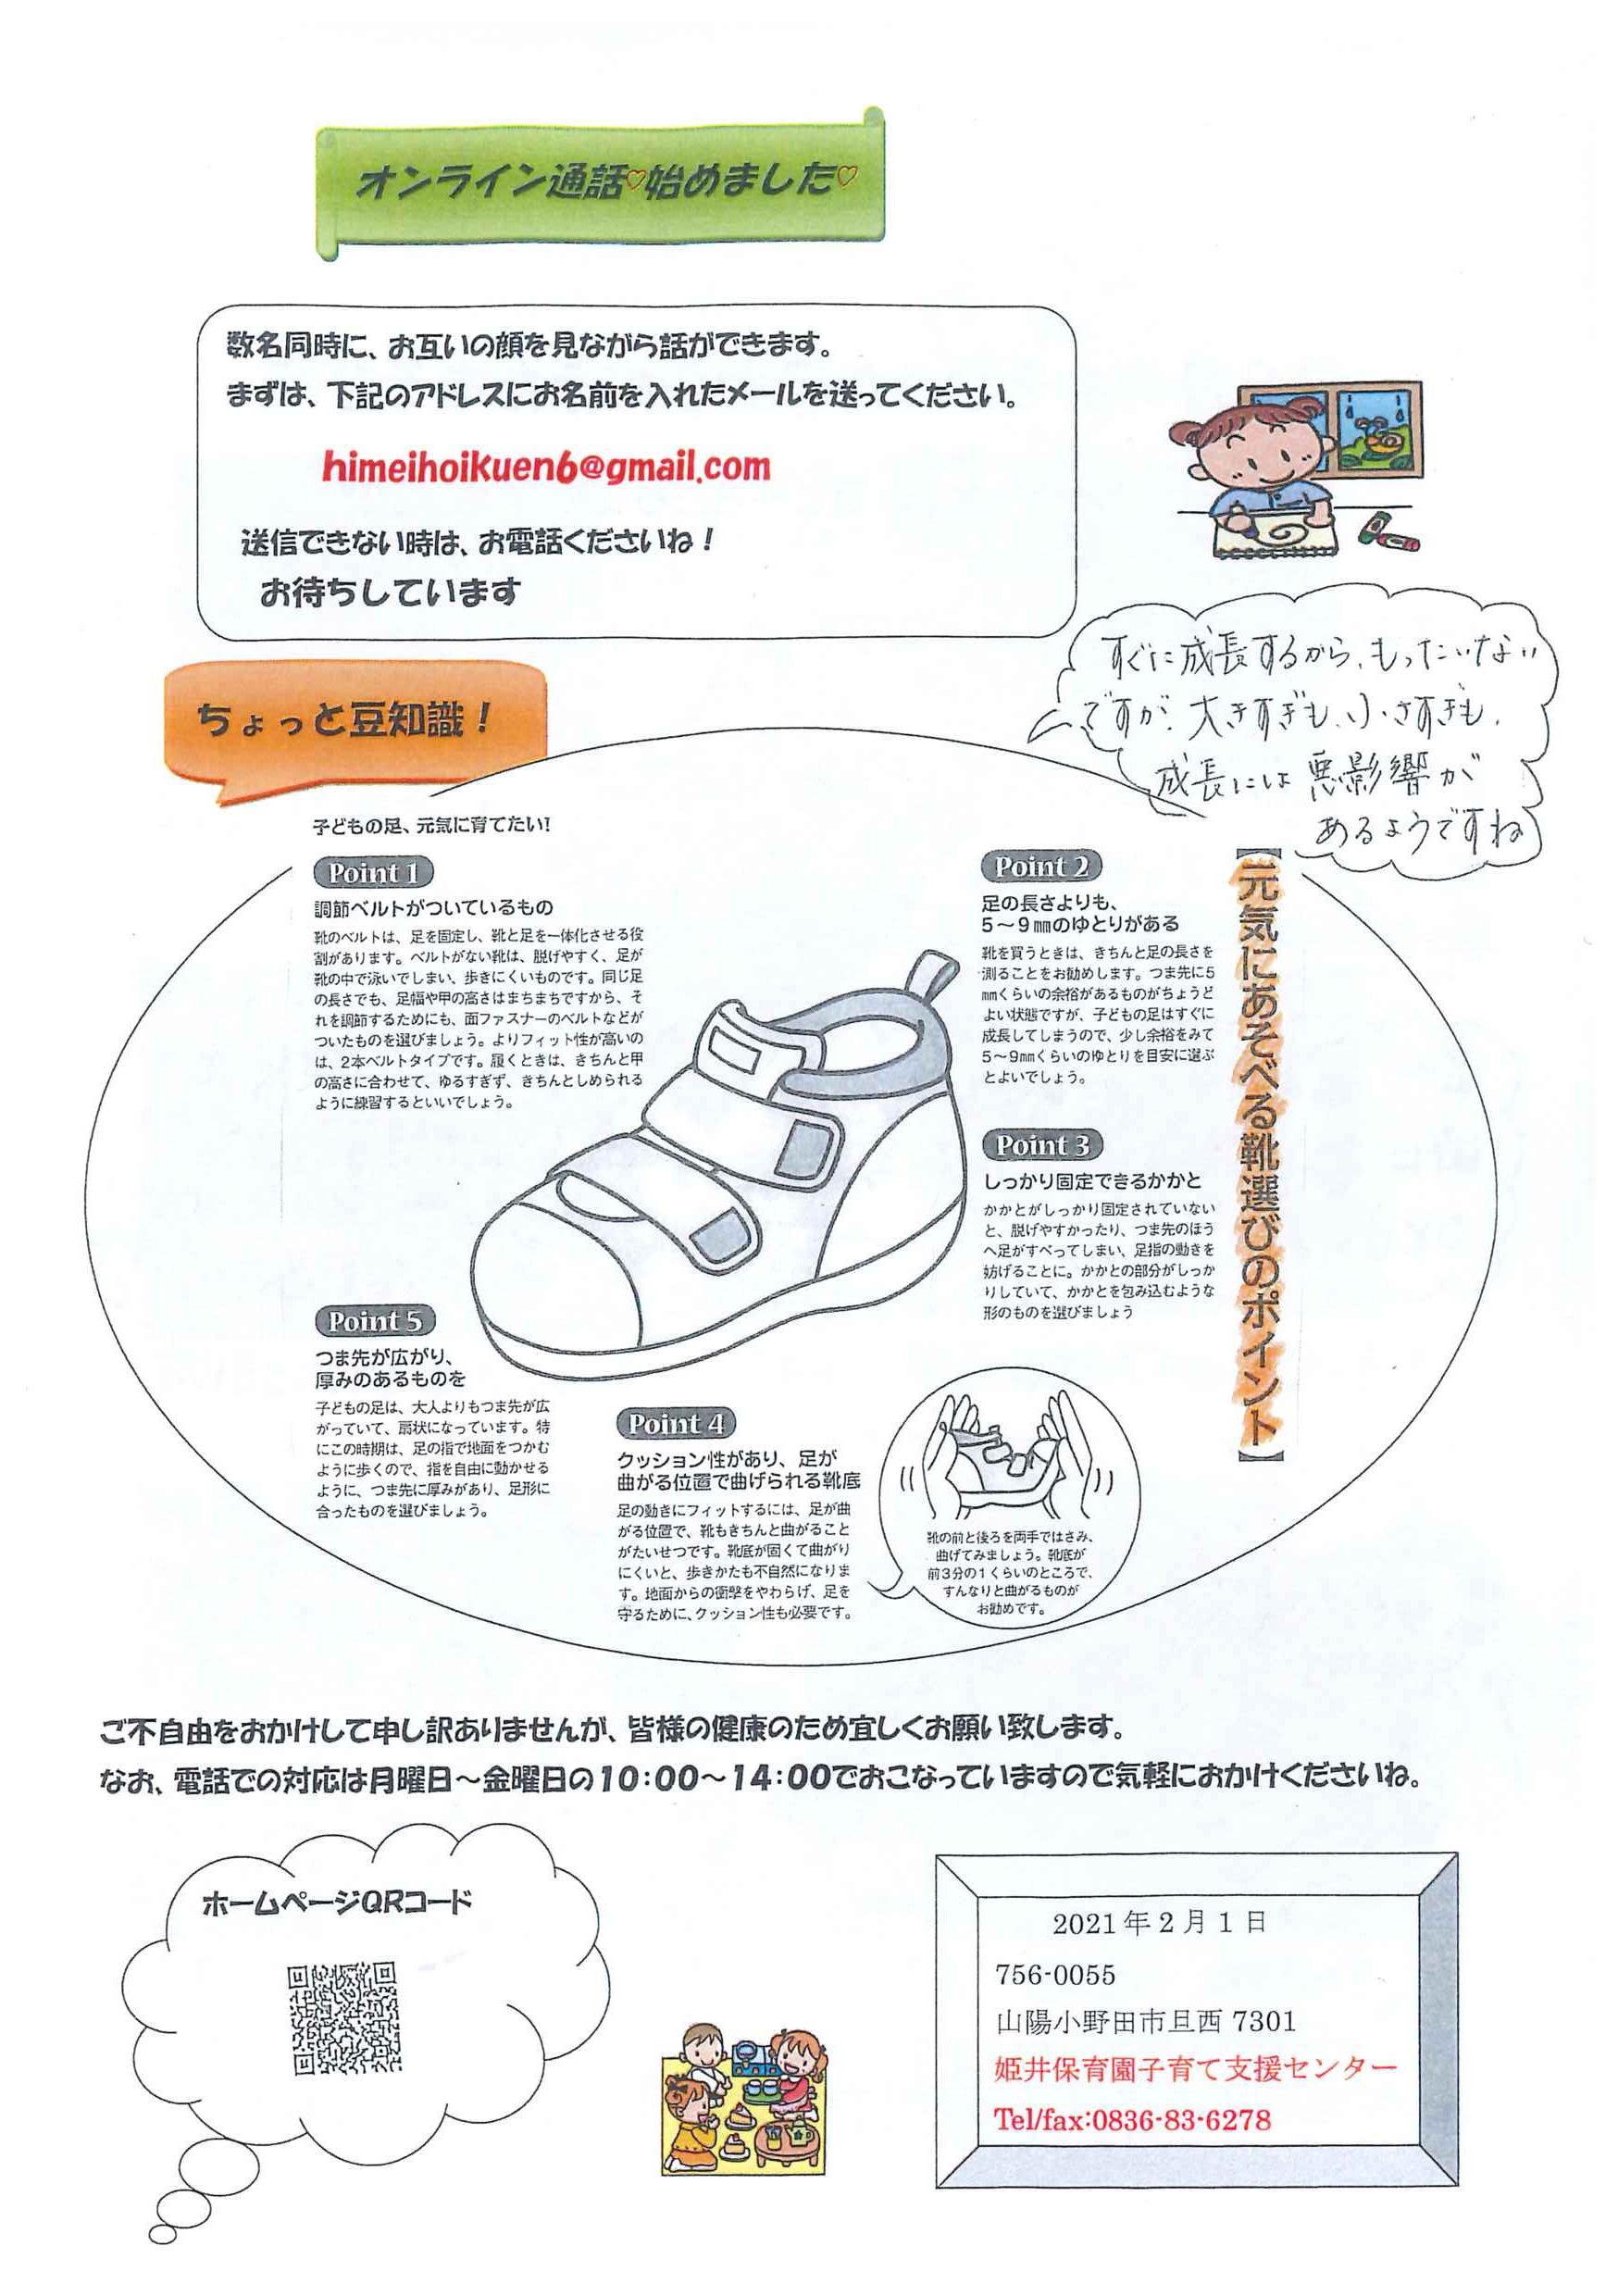 オンライン通話♡始めました♡
数名同時に、お互いの顔を見ながら話ができます。
まずは、下記のアドレスにお名前を入れたメールを送ってください。
himeihoikuen6@gmail.com
送信できない時は、お電話くださいね！
お待ちしています
すぐに成長するから、もったいない
ですが、大きすぎも、小さすぎも、
成長には悪影響が
あるようですね
ちょっと豆知識！
子どもの足、元気に育てたい!
【元気にあそべる靴選びのポイント】
Point 1
調節ベルトがついているもの
靴のベルトは、足を固定し、靴と足を一体化させる役
割があります。ベルトがない靴は、脱げやすく、足が
靴の中で泳いでしまい、歩きにくいものです。同じ足
の長さでも、足幅や甲の高さはまちまちですから、そ
れを調節するためにも、面ファスナーのベルトなどが
ついたものを選びましょう。よりフィット性が高いの
は、2本ベルトタイプです。履くときは、きちんと甲
の高さに合わせて、ゆるすぎず、きちんとしめられる
ように練習するといいでしょう。
Point 2
足の長さよりも、
5～9㎜のゆとりがある
靴を買うときは、きちんと足の長さを
測ることをお勧めします。つま先に5
㎜くらいの余裕があるものがちょうど
よい状態ですが、子どもの足はすぐに
成長してしまうので、少し余裕をみて
5～9㎜くらいのゆとりを目安に選ぶ
とよいでしょう。
Point 3
しっかり固定できるかかと
かかとがしっかり固定されていない
と、脱げやすかったり、つま先のほう
へ足がすべってしまい、足指の動きを
妨げることに。かかとの部分がしっか
りしていて、かかとを包み込むような
形のものを選びましょう
Point 5
つま先が広がり、
厚みのあるものを
子どもの足は、大人よりもつま先が広
がっていて、扇状になっています。特
にこの時期は、足の指で地面をつかむ
ように歩くので、指を自由に動かせる
ように、つま先に厚みがあり、足形に
合ったものを選びましょう。
Point 4
クッション性があり、足が
曲がる位置で曲げられる靴底
足の動きにフィットするには、足が曲
がる位置で、靴もきちんと曲がること
がたいせつです。靴底が固くて曲がり
にくいと、歩きかたも不自然になりま
す。地面からの衝撃をやわらげ、足を
守るために、クッション性も必要です。
靴の前と後ろを両手ではさみ、
曲げてみましょう。靴底が
前3分の1くらいのところで、
すんなりと曲がるものが
お勧めです。
ご不自由をおかけして申し訳ありませんが、皆様の健康のため宜しくお願い致します。
なお、電話での対応は月曜日～金曜日の10：00～14：00でおこなっていますので気軽におかけくださいね。
ホームページQRコード
2021年2月1日
756-0055
山陽小野田市旦西 7301
姫井保育園子育て支援センター
Tel/fax:0836-83-6278